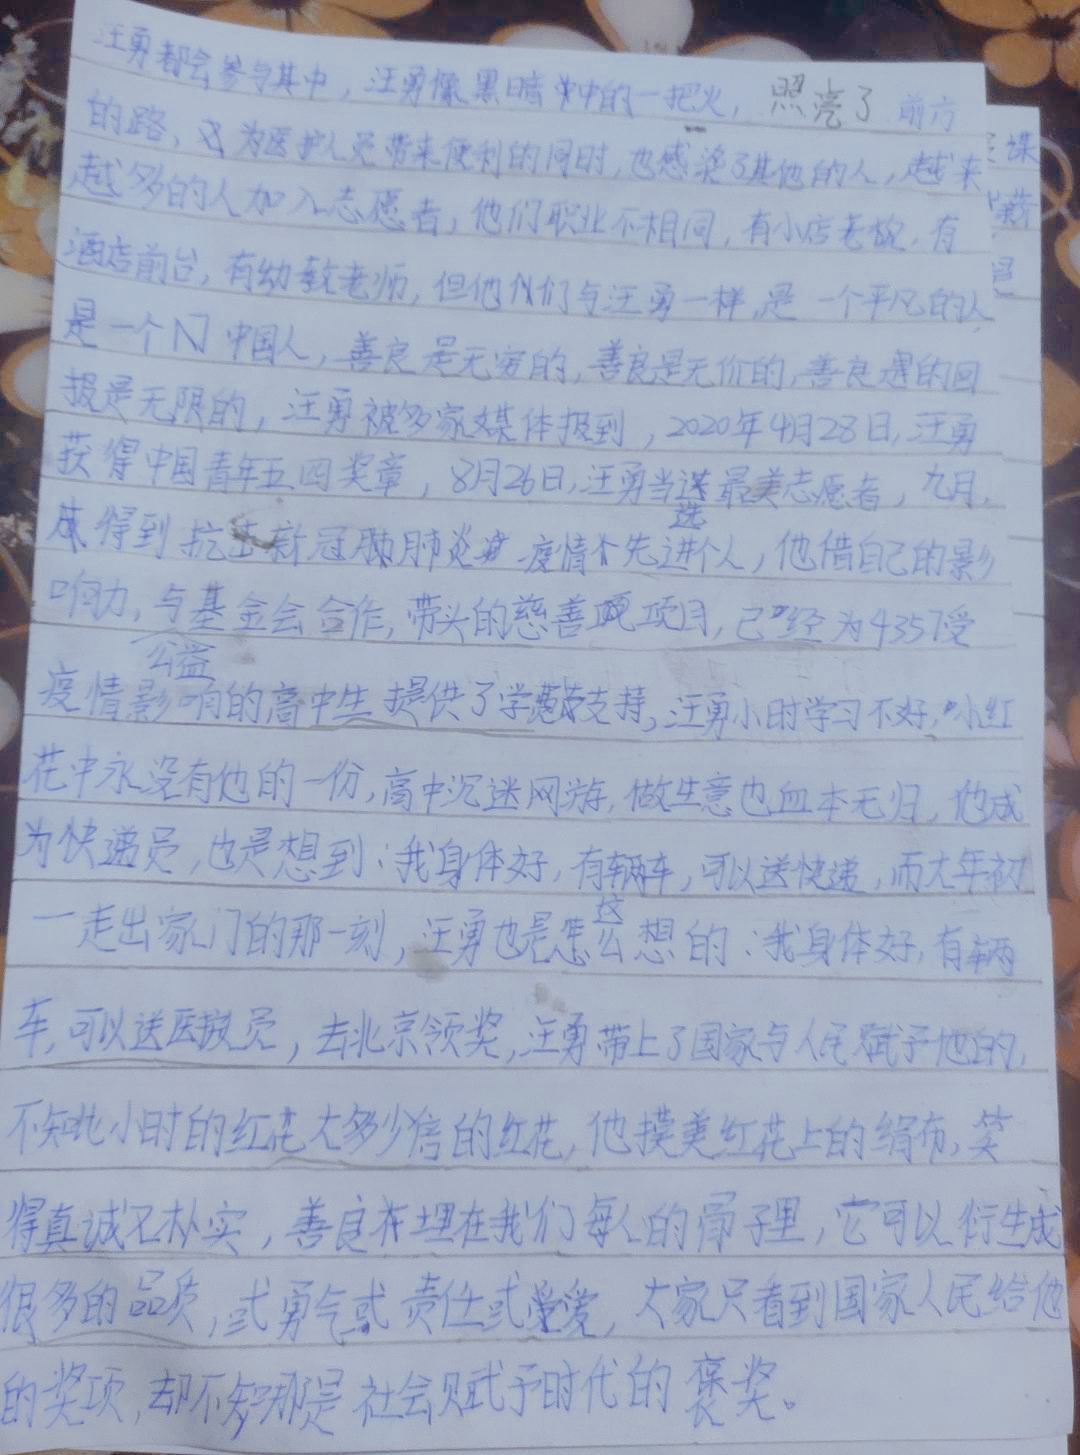 汪勇都会参与其中，汪勇像黑暗中的一把火，照亮了前方
的路，为医护人员带来便利的同时，也感染了其他的人，越来
越多的人加入志愿者，他们职业不相同，有小店老板，有
酒店前台，有幼教老师，但他们与汪勇一样，是一个平凡的人
是一个中国人，善良是无穷的，善良是无价的，善良的回
报是无限的，汪勇被多家媒体报到，2020年4月28日，汪勇
获得中国青年五四奖章，8月26日，汪勇当选最美志愿者，九月，
得到抗击新冠肺炎疫情先进个人，他借自己的影
响力，与公益基金会合作，带头的慈善项目，已经为4357受
疫情影响的高中生提供了学费支持，汪勇小时学习不好，小红
花中永没有他的一份，高中沉迷网游，做生意也血本无归，他成
为快递员，也是想到：我身体好，有辆车，可以送快递，而大年初
一走出家门的那一刻，汪勇也是这么想的：我身体好，有辆
车，可以送医救员，去北京领奖，汪勇带上了国家与人民赋予他的，
不知比小时的红花大多少倍的红花，他摸美红花上的绢布，笑
得真诚又朴实，善良在埋在我们每人的骨子里，它可以衍生成
很多的品质，或勇气或责任或爱，大家只看到国家人民给他
的奖项，却不知那是社会赋予时代的褒奖。